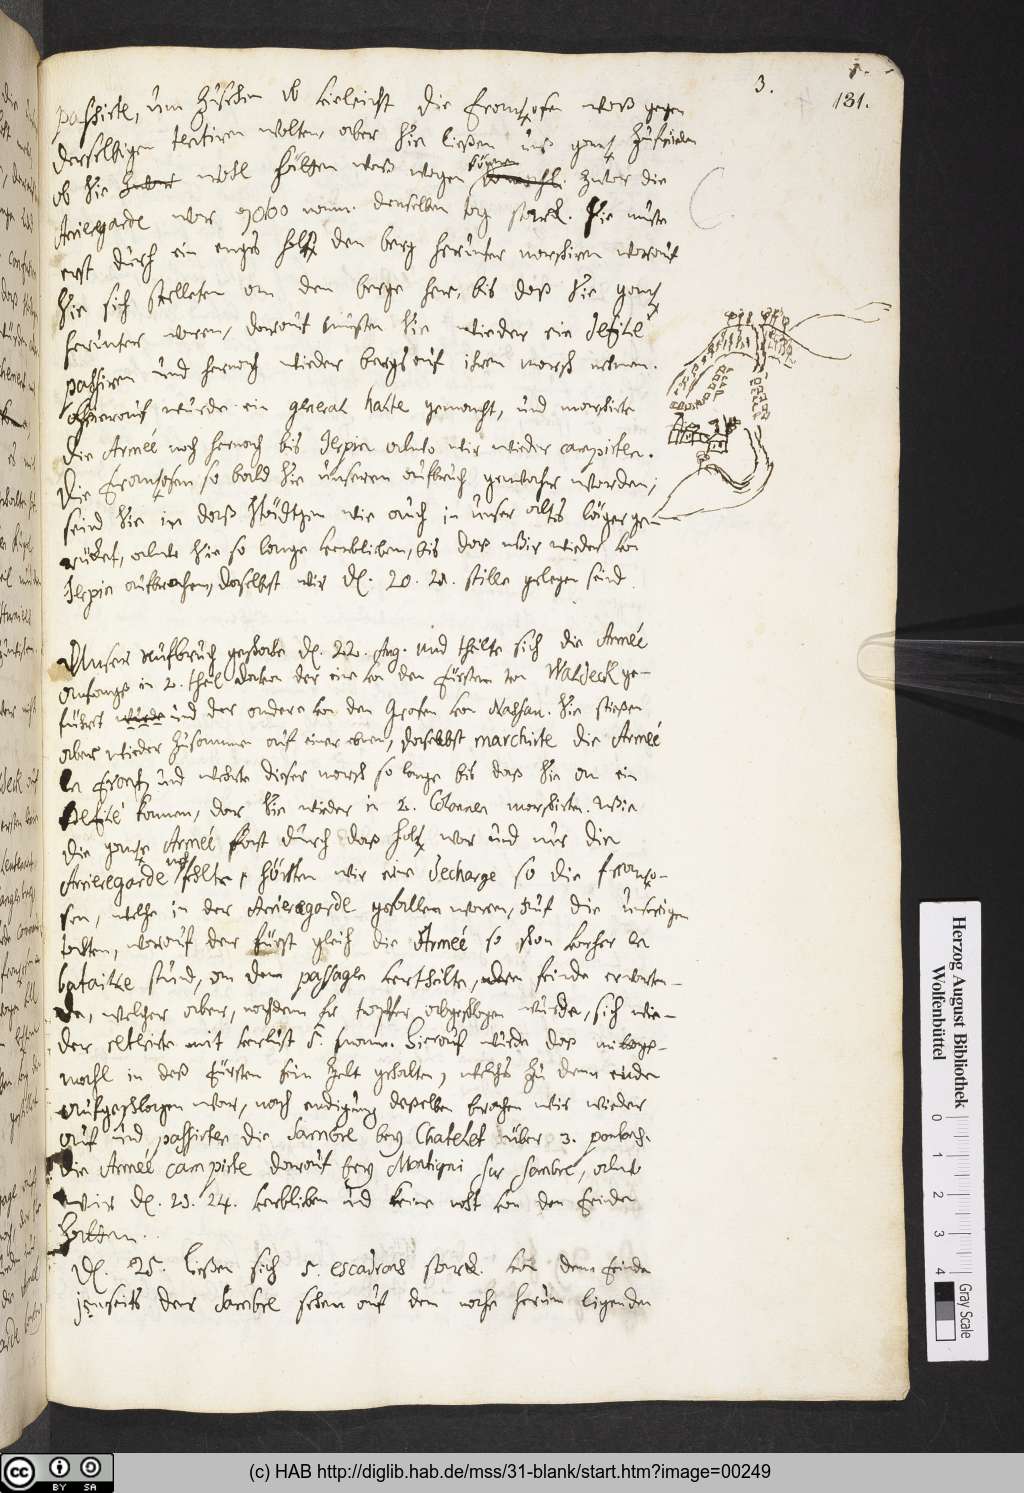 3.
131.
passirte, umb zusehen ob vieleicht die Frantzosen waß gegen
derselbigen tentiren wolten, aber sie ließen uns gantz zufrieden
ob sie wohl hätten waß wagen können zwar die
Arieregarde war 7000 mann denselben tag starck. Sie muste
erst durch ein enges holtz den berg herunter marchiren worauf
sie sich stelleten an dem berge her, bis daß sie gantz
herunter waren, darauf musten sie wieder ein defilé
passiren und hernach wieder bergs auf ihren march nehmen.
hierauf wurde ein general halte gemacht, und marchirte
die Armée noch hernach bis Ierpin alwo wir wieder campirten.
Die Frantzosen so bald sie unseren aufbruch gewahr worden,
seind sie in daß Städtgen wie auch in unser altes läger ge-
rücket, alwo sie so lange verblieben, bis daß wir wieder von
Ierpin aufbrachen, daselbst wir d. 20. 21. stille gelegen sind.
Unser aufbruch geschahe d. 22. Aug. und theilte sich die Armée
anfangs in 2. theil davon der eine von den Fürsten von Waldeck ge-
führet und der andere von den Grafen von Nassau. Sie stießen
aber wieder zusammen auf einer ebnen, daselbst marchirte die Armée
en front und wehrte dieser march so lange bis daß sie an ein
defilé kamen, dar sie wieder in 2. Colonnen marchirten. Wie
die gantze Armée fast durch daß holtz war und nur die
Arieregarde noch fehlte, hörten wir eine decharge so die Frantzo-
sen, welche in der Arieregarde gefallen waren, auf die unsrigen
thäten, worauf der Fürst gleich die Armée so schon vorher en
bataille stund, an dem passagen vertheilte, den feinde erwarten-
de, welcher aber, nachdem er tapfer abgeschlagen wurde, sich wie-
der retirirte mit verlust 5. mann. Hierauf wurde daß mittags-
mahl in deß Fürsten sein Zelt gehalten, welches zu dem ende
aufgeschlagen war, nach endigung deßelben brachen wir wieder
auf und passirten die Sambre bey Chatelet über 3. pontons.
die Armée campirte darauf bey Montigni sur Sambre, alwo
wir d. 23. 24. verblieben und keine noht von den feinde
hatten.
D. 25. ließen sich 5. escadrons starck von dem feinde
jenseits der Sambre sehen auf dem nahe herum ligenden
Herzog August Bibliothek
Wolfenbüttel
0 1 2 3 4
Gray Scale
cc BY SA
(c) HAB http://diglib.hab.de/mss/31-blank/start.htm?image=00249